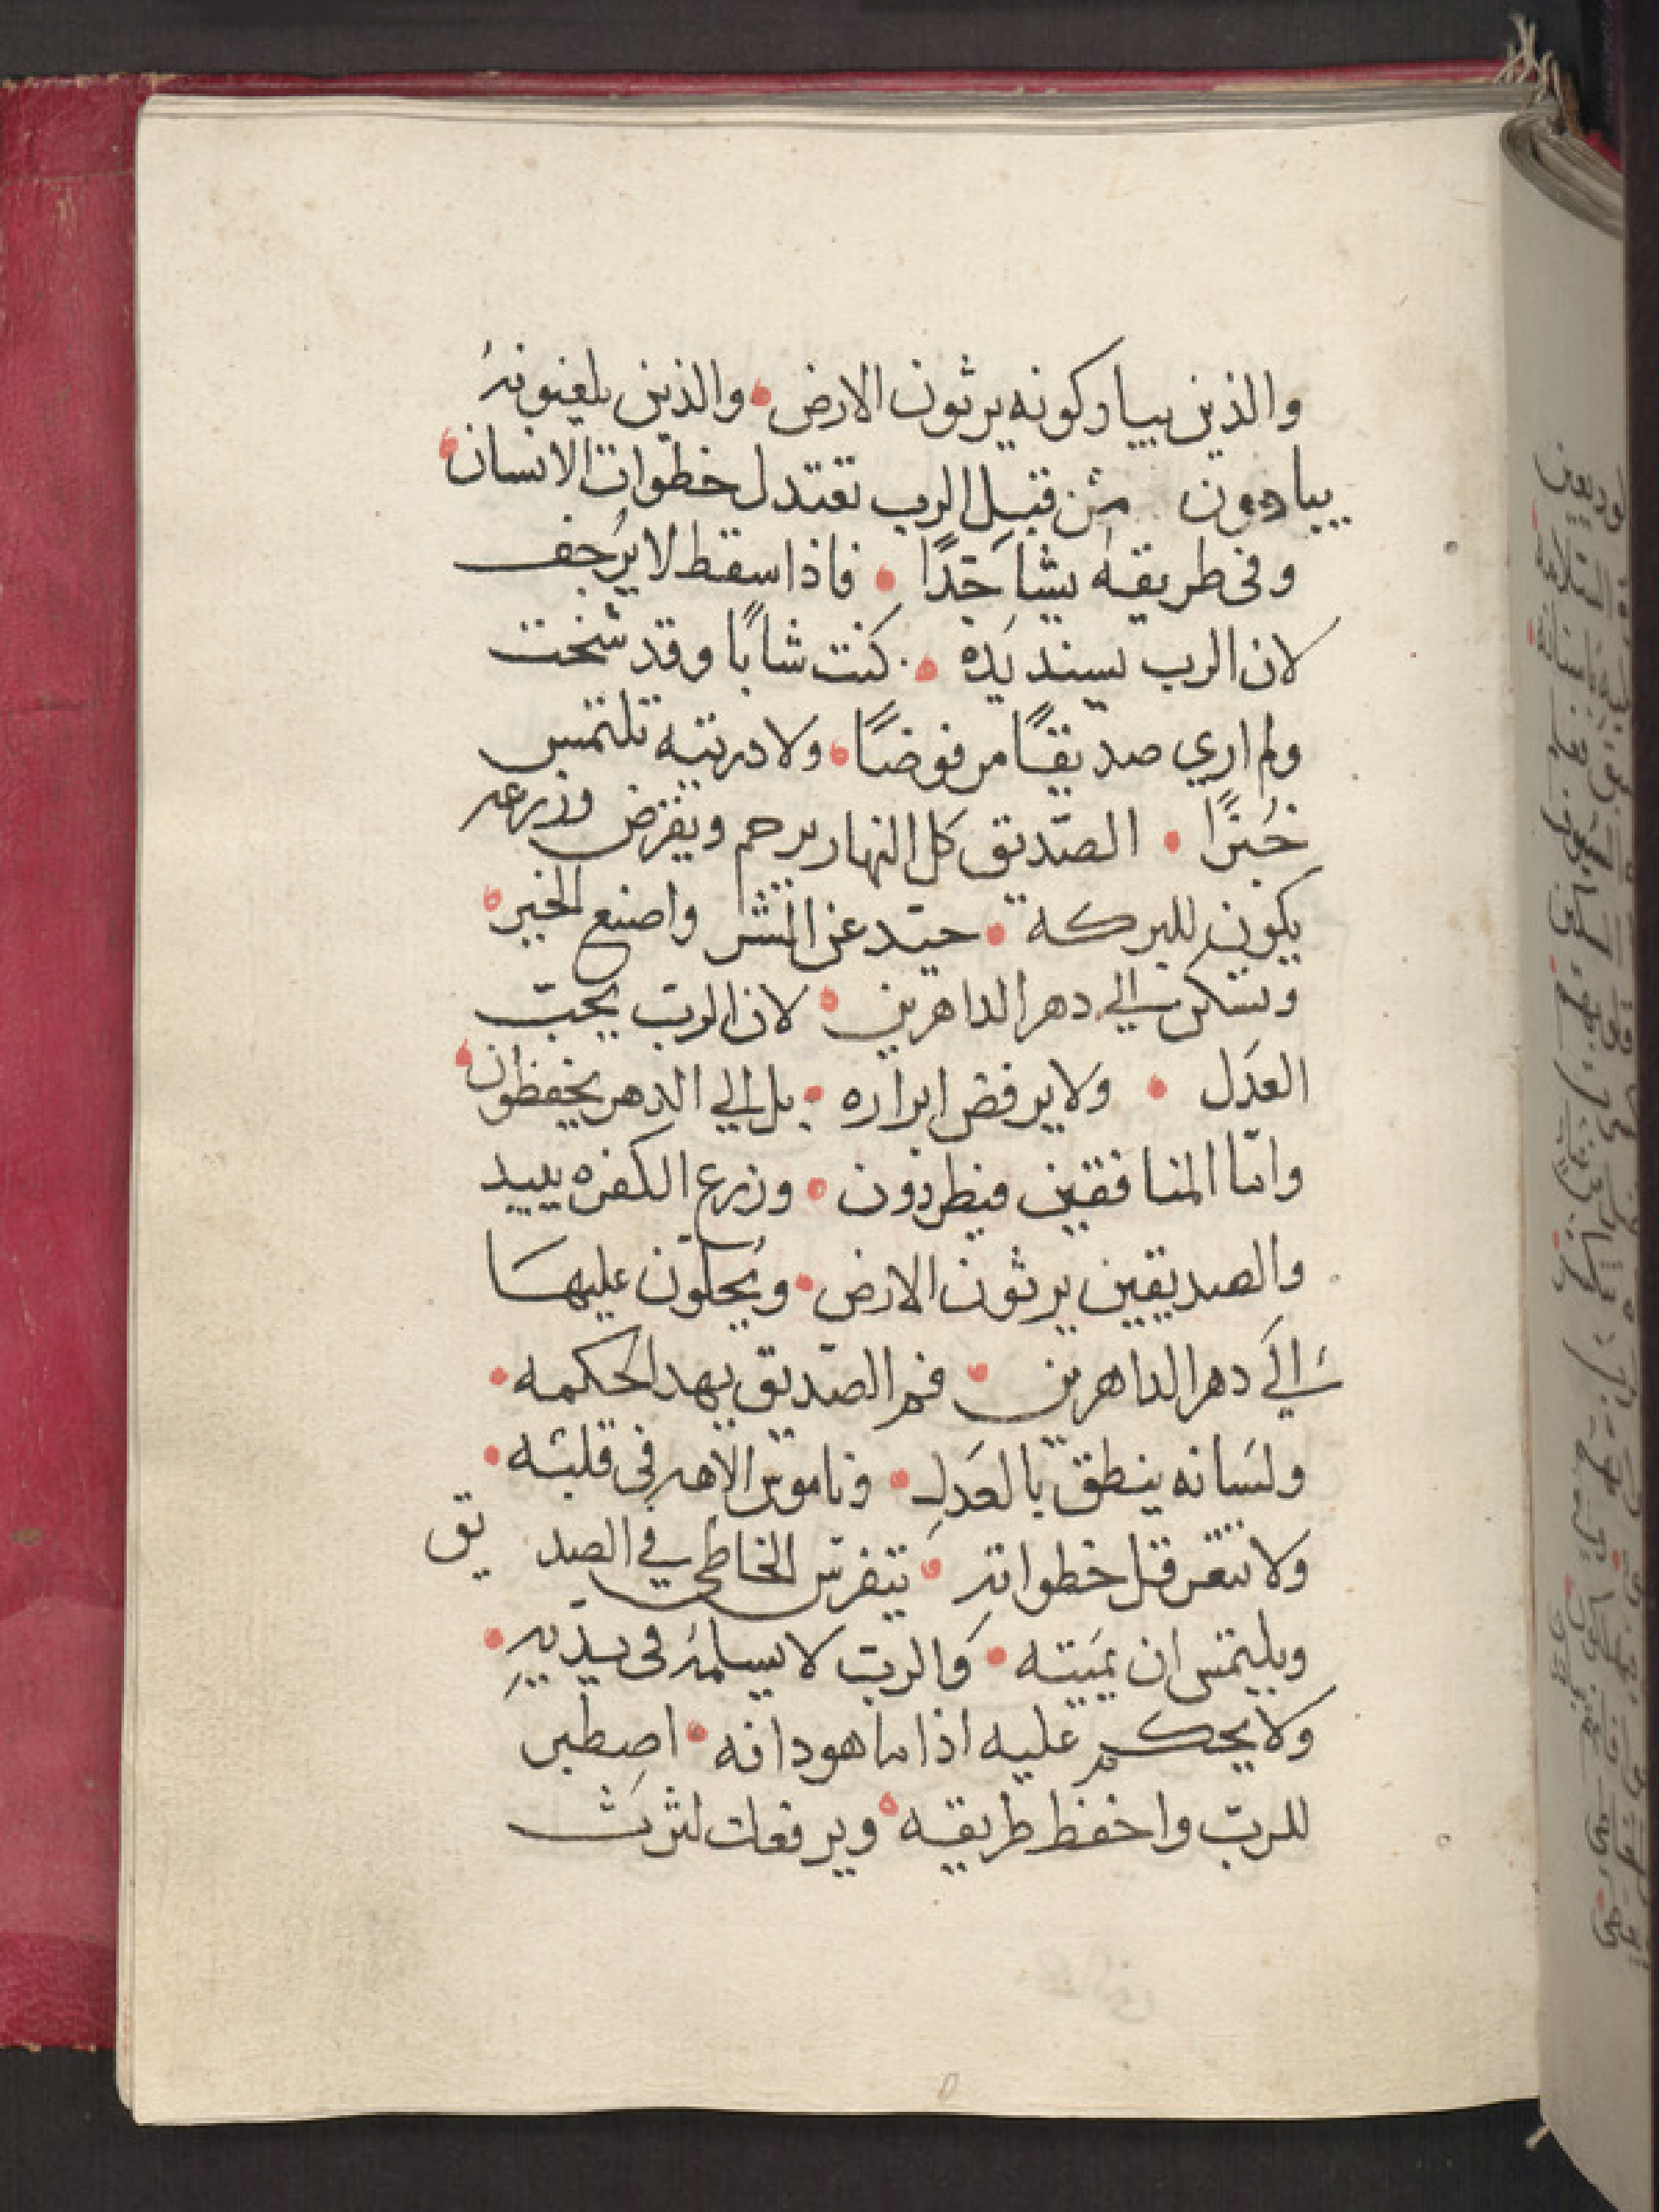 والذين يباركونه يرثون الارض • والذين يلعنونهُ
يبادون من قبل الرب تعتدل خطوات الانسان •
وفى طريقه يشا جدًا • فاذا سقط لا يُرجف
لان الرب يسند يَده • كنت شابًا وقد شخت
ولم اري صديقًا مرفوضًا • ولا دريته تلتمس
خُبزًا • الصّديق كل النهار يرحم ويقرض وزرعه
يكون للبركه • حيد عن الشر واصنع الخير •
وتسكن الي دهر الداهرين • لان الربّ يحبّ
العدَل • ولا يرفض ابراره • بل الي الدهر يحفظون •
وامّا المنافقين فيطردون • وزرع الكفره يبيد
والصديقين يرثون الارض • ويُحلّون عليهَا
الىَ دهر الداهرين • فم الصّديق يهد الحكمه •
ولسَانه ينطق بالعَدلِ • وناموس الاهه فى قلبه •
ولا تتعرقل خطواتهِ • يتفرّس الخاطي في الصديق
ويلتمس ان يمَيته • وَالربّ لا يسلمهُ فى يديهِ •
ولا يحكم عليه اذا ما هو دانه • اصطبر
للربّ واحفظ طريقه • ويرفعك لترَث